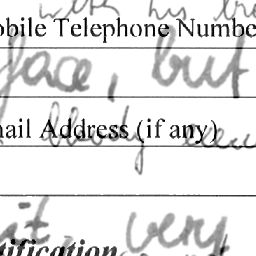 with his
obile Telephone Numbe
face, but
nail Address (if any)
bloody
it very
tification